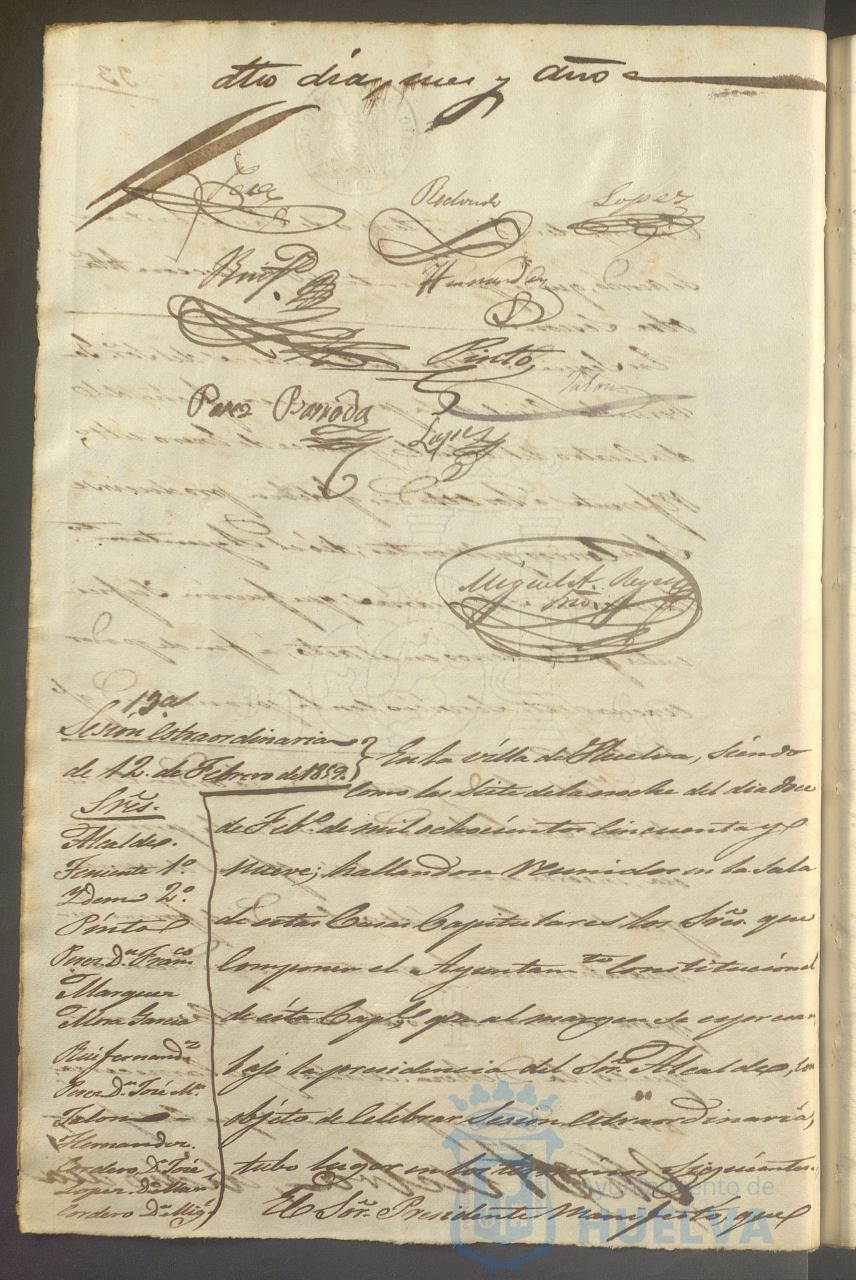 dho dia, mes y año
Redondo
Lopez
Hernandez
Pinto
Talon
Perez Barroda
Lopez
Miguel A. Reyes
Srio.
13ª
Sesion Estraordinaria
de 12. de Febrero de 1859.
Sres.
Alcalde.
Teniente 1º.
Ydem 2º.
Pinto
Perez Dn. Franco.
Marquez
Mora Garcia
Ruifernandz.
Perez Dn. José Mª.
Talon
Hernandez.
Cordero Dn. José
Lopez Dn. Man
Cordero Dn. Migl.
En la villa de Huelva, siendo
como las siete de la noche del dia doce
de Febº. de mil ochocientos cincuenta y
nueve; hallandose reunidos en la Sala
de estas Casas Capitulares los Sres. que
componen el Ayuntamto. Constitucional
de esta Capl. qe. al margen se expresan,
bajo la presidencia del Sor. Alcalde, con
objeto de Celebrar Sesion Estraordinaria,
tubo lugar en los terminos siguientes.
El Sor. Presidente Manifestó, que
Ayuntamiento de
HUELVA